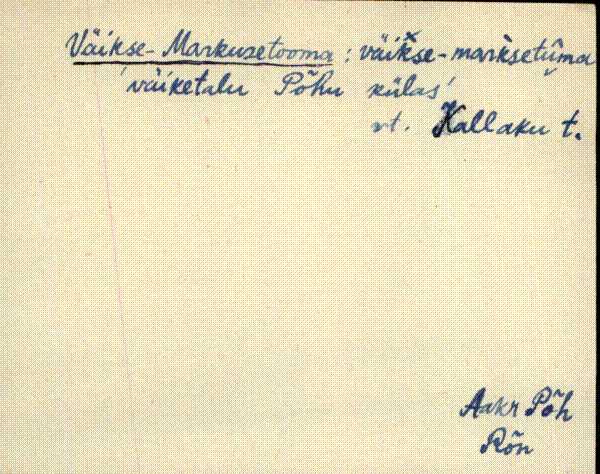 Väikse-Markusetooma : väikse-marksetūma
'väiketalu Põhu külas'
vt. Kallaku t.
Aakr Põh
Rõn